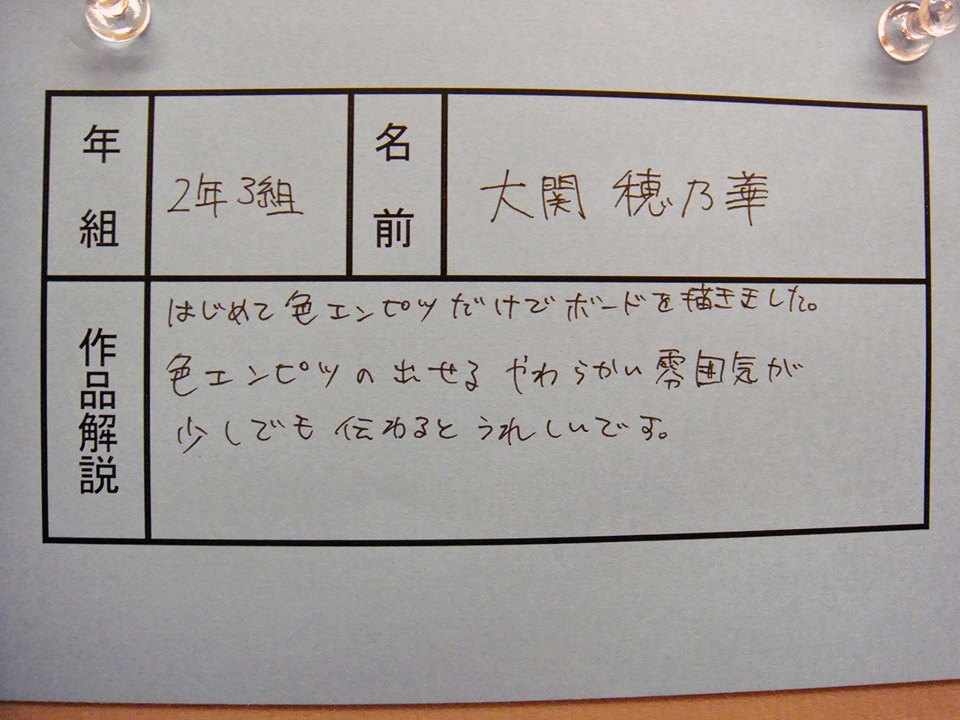 年組 2年3組 名前 大関 穂乃華
作品解説
はじめて色エンピツだけでボードを描きました。
色エンピツの出せるやわらかい雰囲気が
少しでも伝わるとうれしいです。